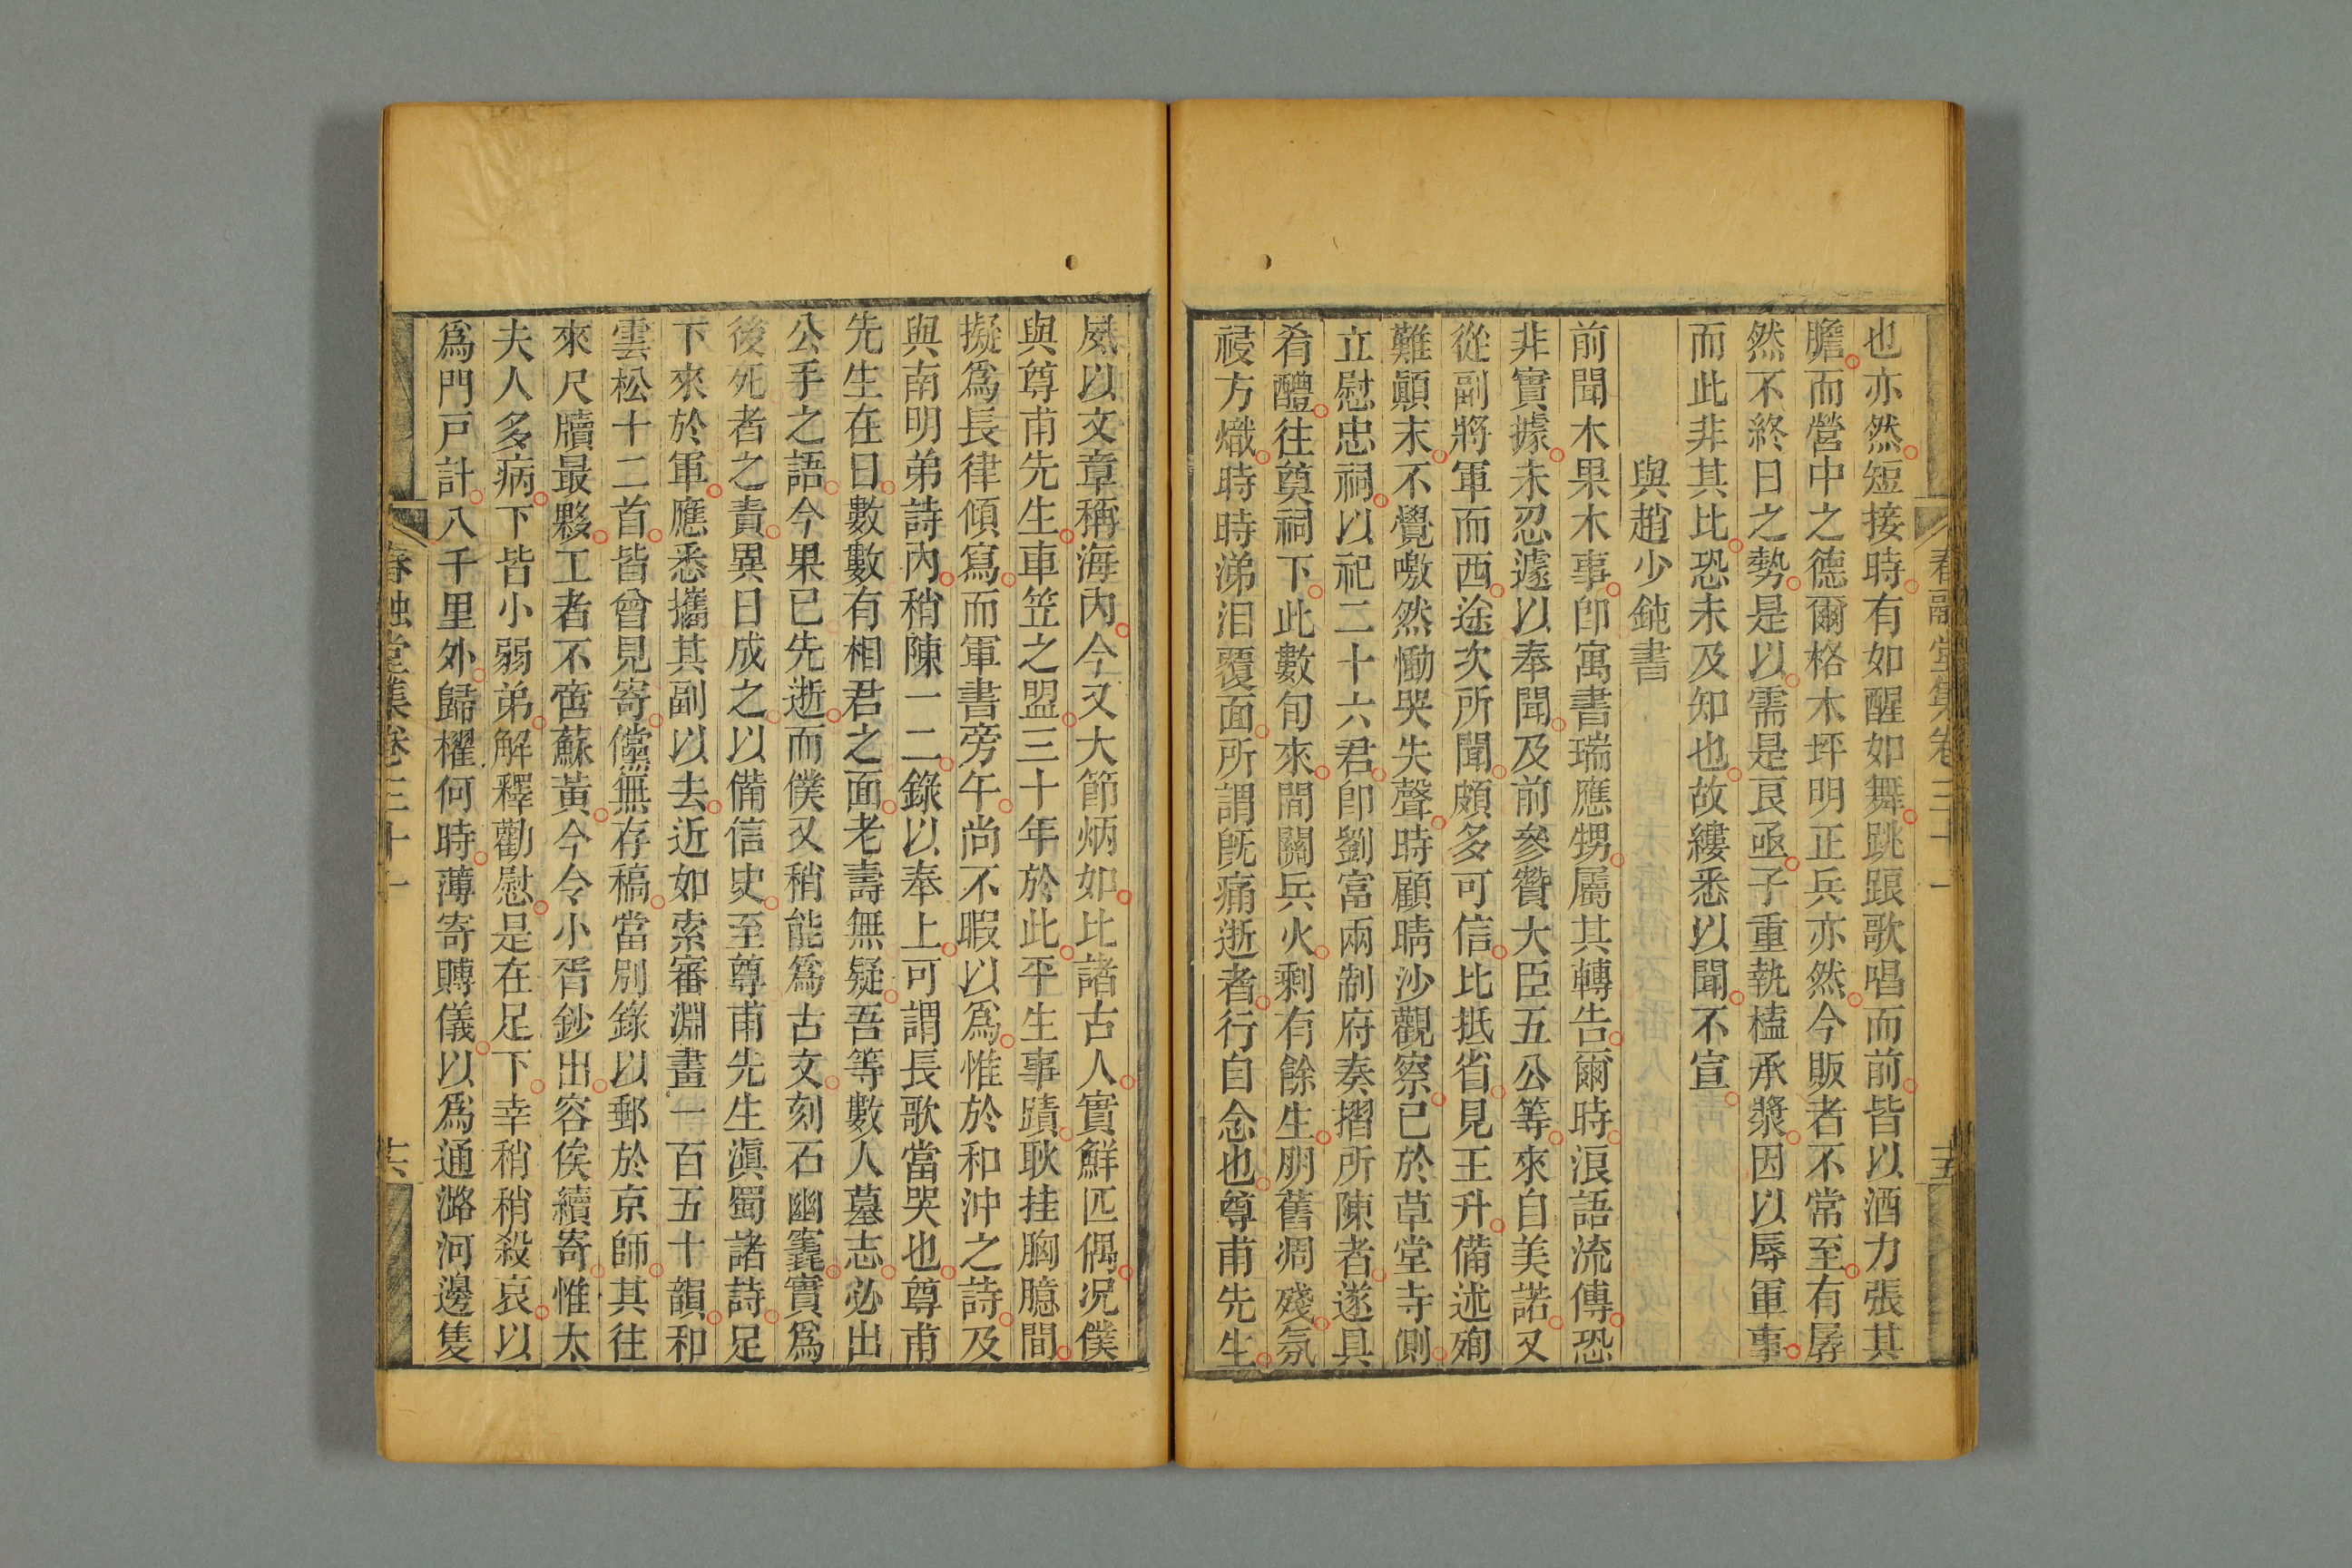 春融堂集卷三十一
十五
也亦然短接時有如醒如舞跳踉歌唱而前皆以酒力張其
膽而營中之德爾格木坪明正兵亦然今販者不常至有孱
然不終日之勢是以需是艮亟子重執榼承漿因以辱軍事
而此非其比恐未及知也故縷悉以聞不宣
與趙少鈍書
前聞木果木事卽寓書瑞應甥屬其轉告爾時浪語流傳恐
非實據未忍遽以奉聞及前參贊大臣五公等來自美諾又
從副將軍而西途次所聞頗多可信比抵省見王升備述殉
難顚末不覺噭然慟哭失聲時顧晴沙觀察已於草堂寺側
立慰忠祠以祀二十六君卽劉富兩制府奏摺所陳者遂具
肴醴往奠祠下此數旬來間關兵火剩有餘生朋舊凋殘氛
祲方熾時時涕泪覆面所謂旣痛逝者行自念也尊甫先生
夙以文章稱海內今又大節炳如比諸古人實鮮匹偶况僕
與尊甫先生車笠之盟三十年於此平生事蹟耿挂胸臆間
擬爲長律傾寫而軍書旁午尚不暇以爲惟於和沖之詩及
與南明弟詩內稍陳一二錄以奉上可謂長歌當哭也尊甫
先生在日數數有相君之面老壽無疑吾等數人墓志必出
公手之語今果已先逝而僕又稍能爲古文刻石幽竁實爲
後死者之責異日成之以備信史至尊甫先生滇蜀諸詩足
下來於軍應悉攜其副以去近如索審淵畫一百五十韻和
雲松十二首皆曾見寄儻無存稿當別錄以郵於京師其往
來尺牘最夥工者不啻蘇黃今令小胥鈔出容俟續寄惟太
夫人多病下皆小弱弟解釋勸慰是在足下幸稍稍殺哀以
爲門戸計八千里外歸櫂何時薄寄賻儀以爲通潞河邊隻
春融堂集卷三十一
十六